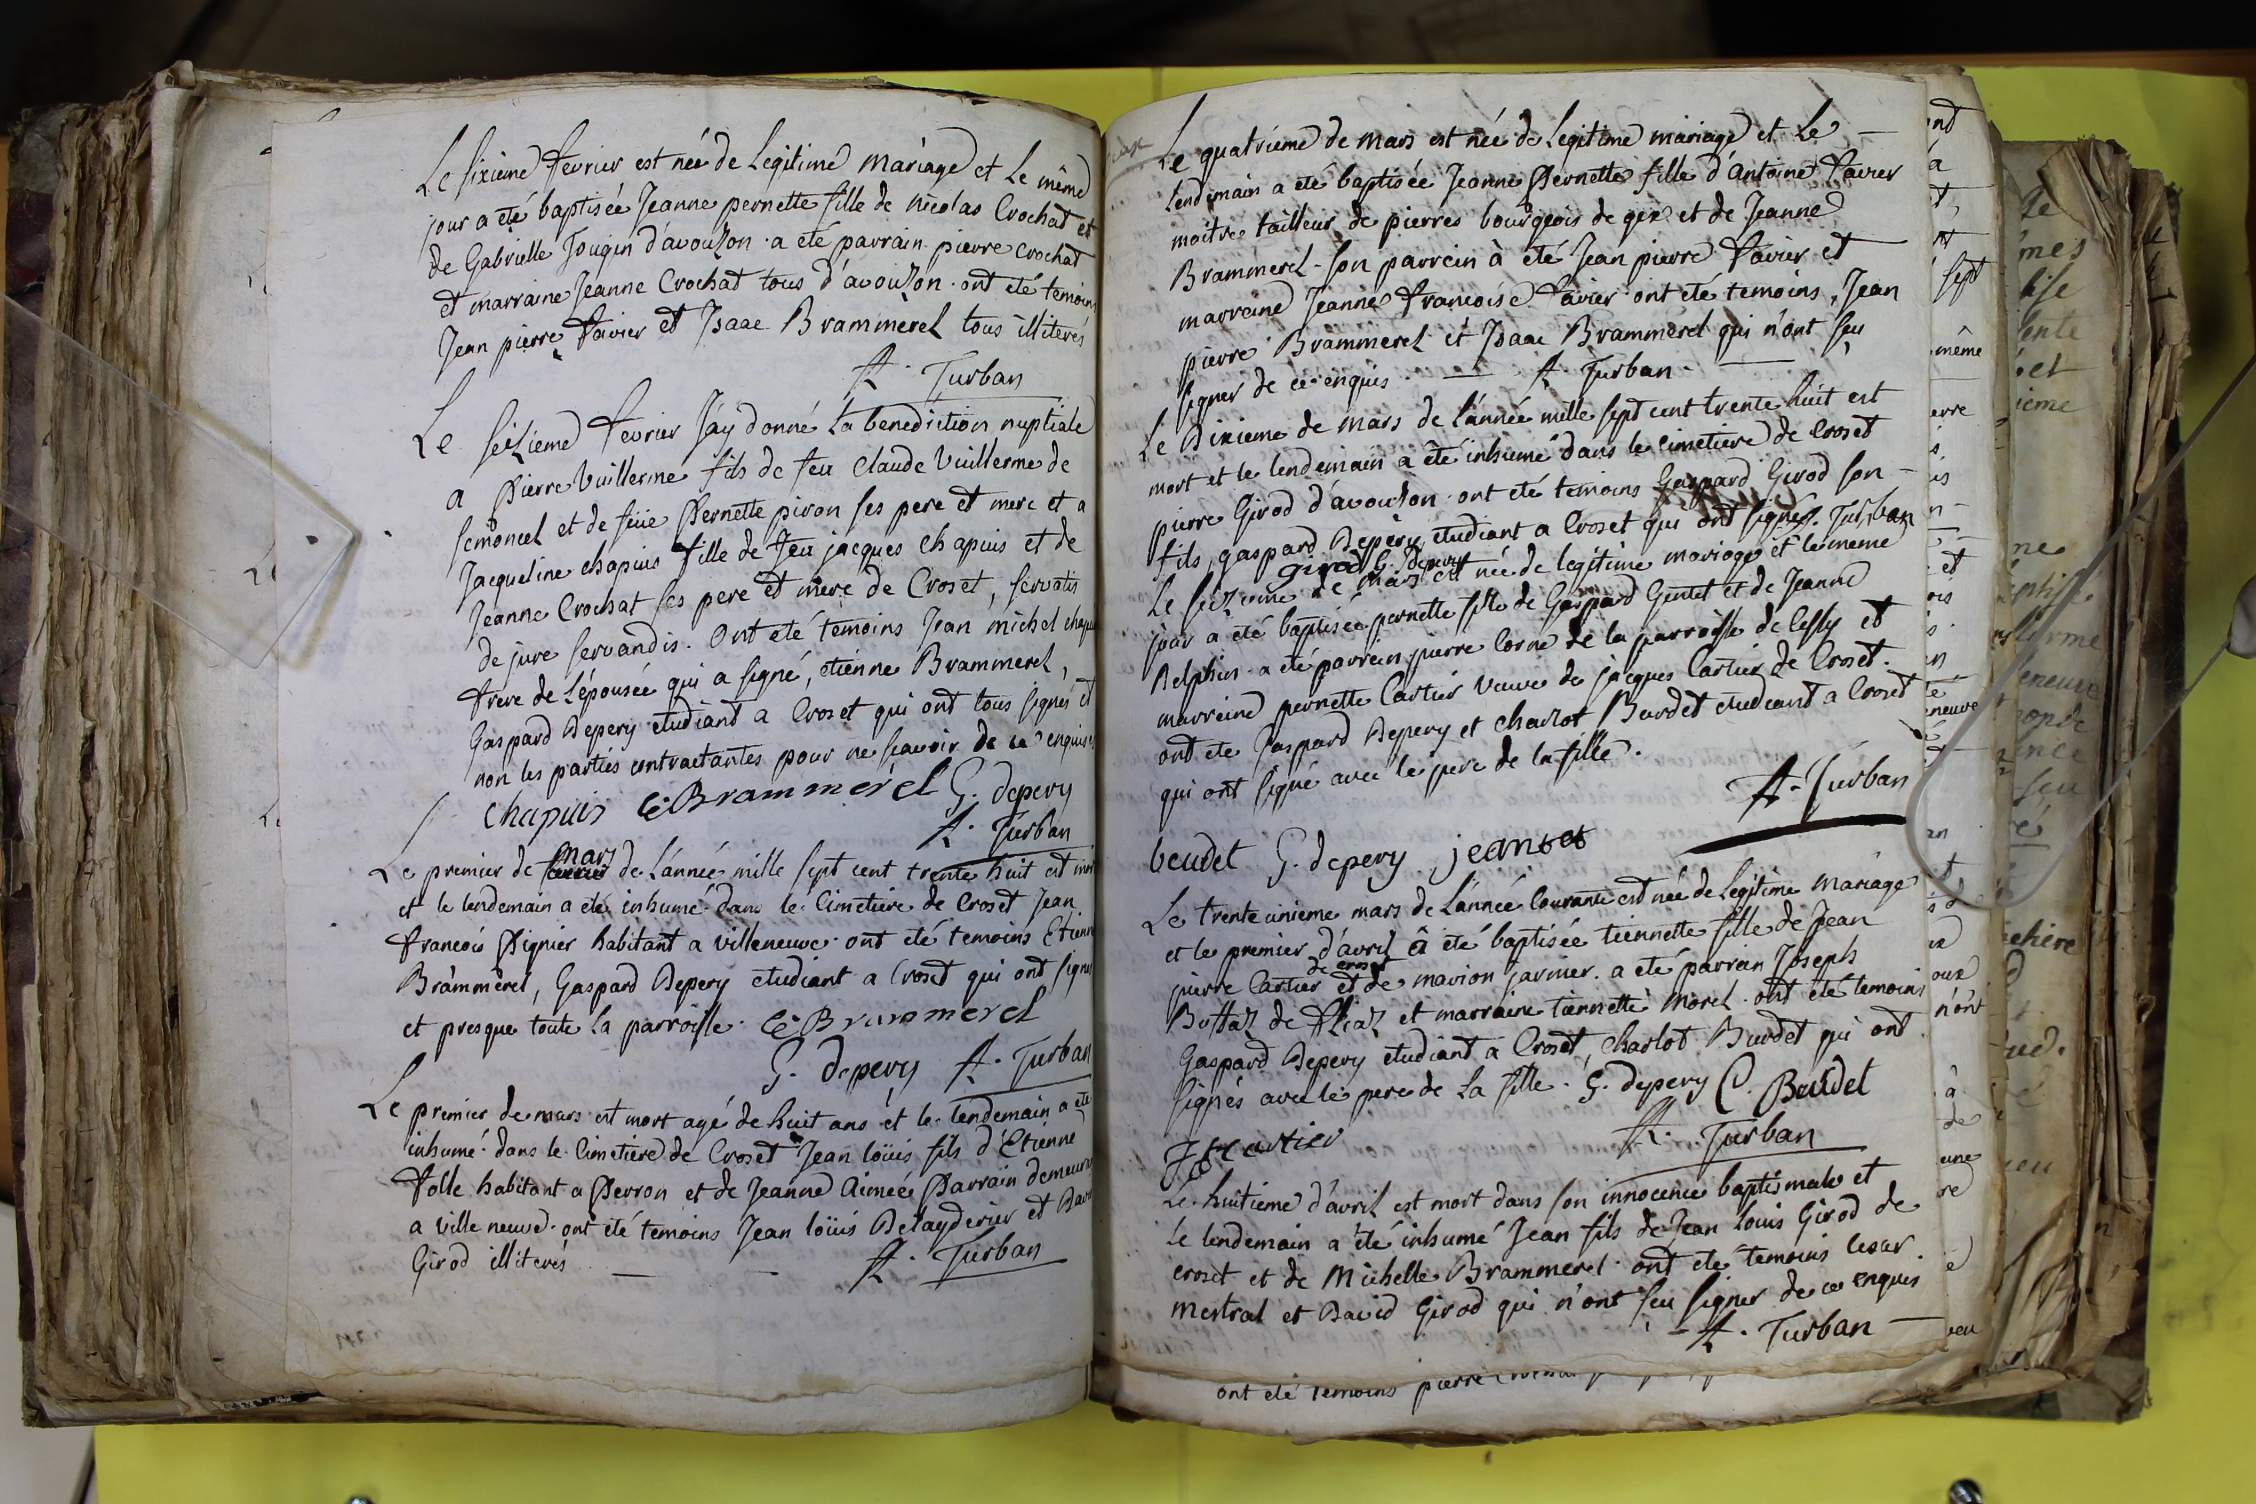 Le sixieme fevrier est née de Legitime mariage et Le même
jour a eté baptisée Jeanne pernette fille de nicolas Crochat et
de Gabrielle Jougin d'avouzon . a eté parrain pierre crochat
et marraine Jeanne Crochat tous d'avouzon . ont eté temoins
Jean pierre favier et Isaac Brammerel tous illiterés
A . Turban
Le seizieme fevrier J'ay donné la benediction nuptiale
a Pierre Vuillerme fils de feu Claude Vuillerme de
semoncel et de feüe Pernette piron ses pere et mere et a
Jacqueline chapuis fille de feu jacques chapuis et de
Jeanne Crochat ses pere et mere de Croset, servatis
de jure servandis . Ont eté temoins Jean michel chapuis
frere de L'épousée qui a signé, etienne Brammerel,
Gaspard Depery etudiant a Croset qui ont tous signés et
non les parties contractantes pour ne scavoir de ce enquises
Chapuis E Brammerel G. depery
A . Turban
Le premier de mars de L'année mille sept cent trente huit est mort
et le lendemain a eté inhumé dans le Cimetiere de Croset Jean
francois Pignier habitant a villeneuve . ont eté temoins Etienne
Brammerel, Gaspard Depery etudiant a Croset qui ont signés
et presque toute la parroisse . E Brammerel
G. depery A . Turban
Le premier de mars est mort agé de huit ans et le lendemain a eté
inhumé dans le Cimetiere de Croset Jean loüis fils d'Etienne
folle habitant a Perron et de Jeanne Aimée Parrain demeurant
a ville neuve . ont eté temoins Jean loüis Delayderier et David
Girod illiterés
A . Turban
Le quatrieme de mars est née de Legitime mariage et Le
lendemain a eté baptisée Jeanne Pernette fille d'Antoine favier
maitre tailleur de pierres bourgeois de gex et de Jeanne
Brammerel . son parrein à eté Jean pierre favier et
marreine Jeanne francoise favier . ont eté temoins, Jean
pierre Brammerel et Isaac Brammerel qui n'ont sçu
signer de ce enquis . A . Turban .
Le Dixieme de mars de L'année mille sept cent trente huit est
mort et le lendemain a eté inhumé dans le cimetiere de Croset
pierre Girod d'avouzon . ont eté temoins Gaspard Girod son
fils, gaspard Depery etudiant a Croset qui ont signés . Turban
girod G. depery
Le seizieme de mars est née de legitime mariage et le meme
jour a eté baptisée pernette fille de Gaspard Gentet et de Jeanne
Delphin . a eté parrein pierre Corne de la parroisse de Cessy et
marreine pernette Cartier veuve de jacques Cartier de Croset .
ont eté Gaspard Depery et charlot Burdet etudiant a Croset
qui ont signé avec le pere de la fille .
A . Turban
beudet G. depery jeantet
Le trente unieme mars de L'année Courante est née de Legitime mariage
et le premier d'avril à eté baptisée tiennette fille de Jean
pierre Cartier de croset et de marion jarnier . a eté parrain Joseph
Buffaz de Aliaz et marraine tiennette morel . ont eté temoins
Gaspard Depery etudiant a Croset, Charlot Burdet qui ont
signés avec le pere de la fille . G. depery C. Beudet
J P Cartier A . Turban
Le huitieme d'avril est mort dans son innocence baptismale et
le lendemain a eté inhumé Jean fils de Jean Louis Girod de
croset et de Michelle Brammerel . ont eté temoins Cesar
mestral et David Girod qui n'ont sçu signer de ce enquis
A . Turban
ont eté temoins pierre